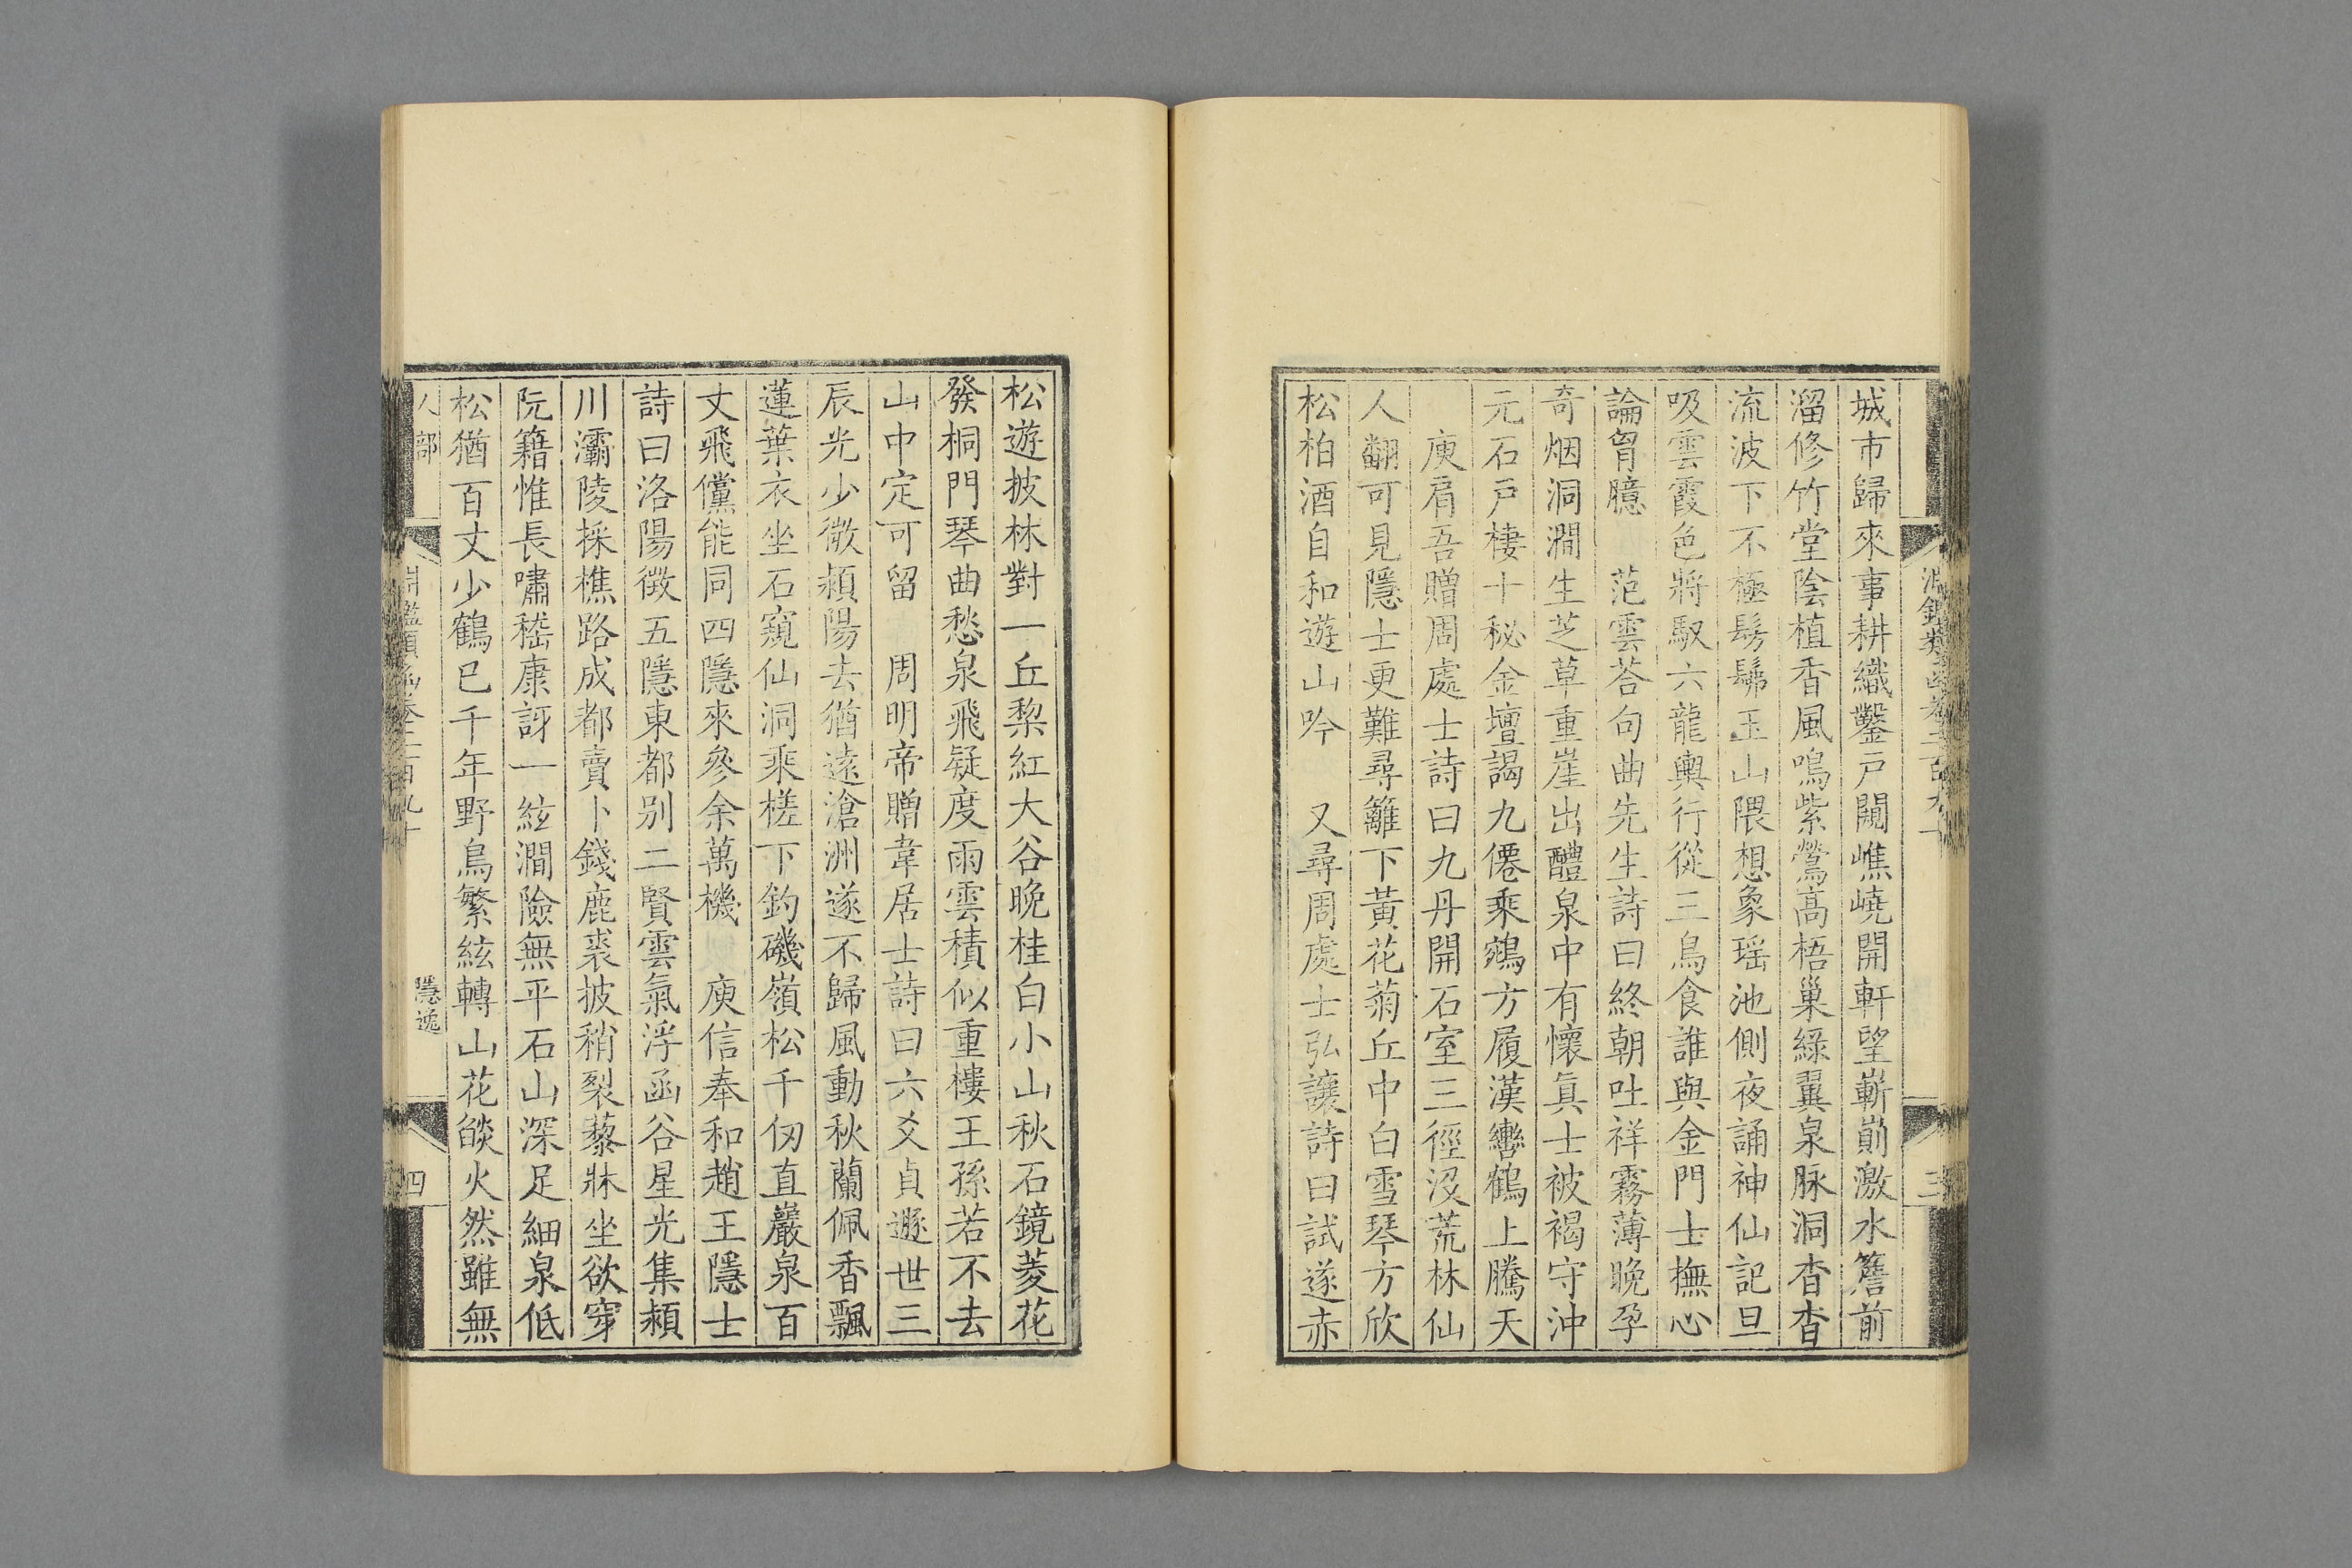 城市歸來事耕織鑿戸闚嶕嶢開軒望嶄崱激水簷前
溜修竹堂陰植香風鳴紫鶯高梧巢綠翼泉脉洞杳杳
流波下不極髣髴玉山隈想象瑶池側夜誦神仙記旦
吸雲霞色將馭六龍輿行從三鳥食誰與金門士撫心
論胷臆　范雲荅句曲先生詩曰終朝吐祥霧薄晚孕
奇烟洞澗生芝草重崖出醴泉中有懷眞士被褐守沖
元石戸棲十秘金壇謁九僊乘鵷方履漢轡鶴上騰天
庾肩吾贈周處士詩曰九丹開石室三徑没荒林仙
人翻可見隱士更難尋籬下黃花菊丘中白雪琴方欣
松柏酒自和遊山吟　又尋周處士弘讓詩曰試逐赤
三
松遊披林對一丘棃紅大谷晚桂白小山秋石鏡菱花
發桐門琴曲愁泉飛疑度雨雲積似重樓王孫若不去
山中定可留　周明帝贈韋居士詩曰六爻貞遯世三
辰光少微潁陽去猶遠滄洲遂不歸風動秋蘭佩香飄
蓮葉衣坐石窺仙洞乘槎下釣磯嶺松千仞直巖泉百
丈飛儻能同四隱來參余萬機　庾信奉和趙王隱士
詩曰洛陽徵五隱東都别二賢雲氣浮函谷星光集潁
川灞陵採樵路成都賣卜錢鹿裘披稍裂藜牀坐欲穿
阮籍惟長嘯嵇康訝一絃澗險無平石山深足細泉低
松猶百丈少鶴已千年野鳥繁絃轉山花燄火然雖無
人部
隱逸
四